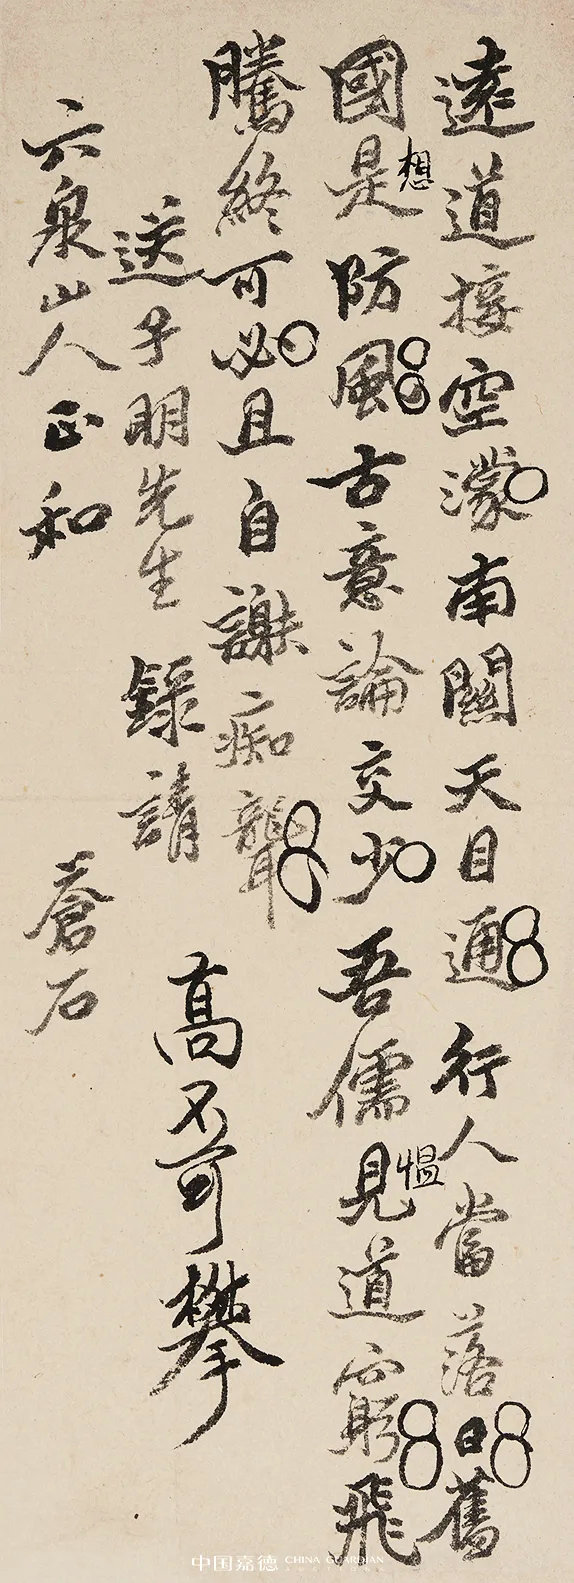 遠道接空濛南關天目通行人當落日舊
國是防風古意論交少吾儒見道窮飛
想
慍
騰終可必且自謝痴聾
送子明先生錄請
高不可攀
六泉山人正和
蒼石
中国嘉德 CHINA GUARDIAN